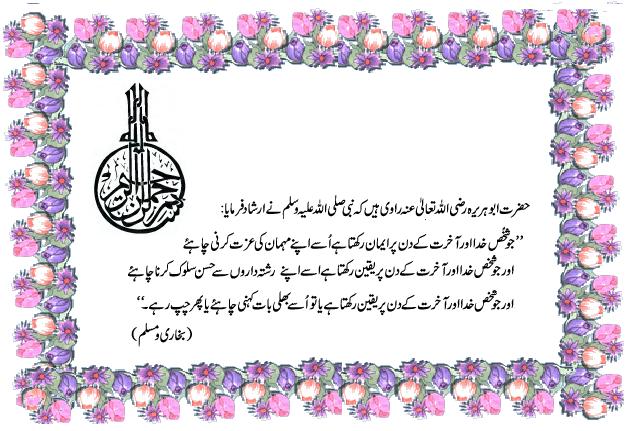 بسم الله الرحمن الرحيم
حضرت ابو ہریرہ رضی اللہ تعالیٰ عنہ راوی ہیں کہ نبی صلی اللہ علیہ وسلم نے ارشاد فرمایا:
”جو شخص خدا اور آخرت کے دن پر ایمان رکھتا ہے اُسے اپنے مہمان کی عزت کرنی چاہئے
اور جو شخص خدا اور آخرت کے دن پر یقین رکھتا ہے اسے اپنے رشتہ داروں سے حسن سلوک کرنا چاہئے
اور جو شخص خدا اور آخرت کے دن پر یقین رکھتا ہے یا تو اُسے بھلی بات کہنی چاہئے یا پھر چپ رہے۔“
(بخاری و مسلم)